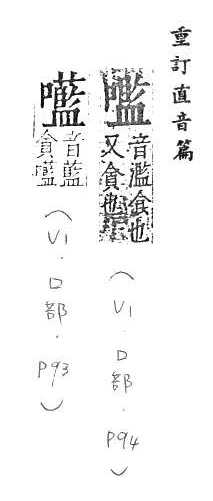 重訂直音篇
嚂 音濫食也又貪也
（V1．口部．P94）
嚂 音藍貪嚂
（V1．口部．P93）